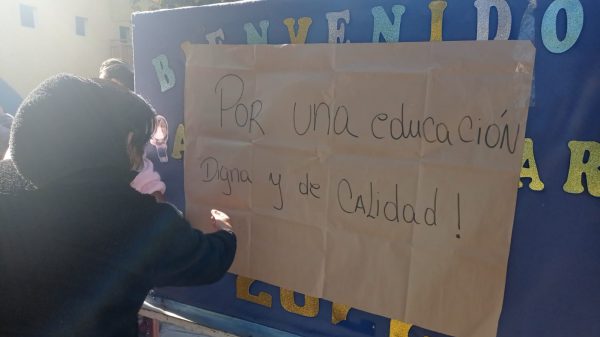 BIENVENIDO
POR una educación
Digna y de CALIDAD!